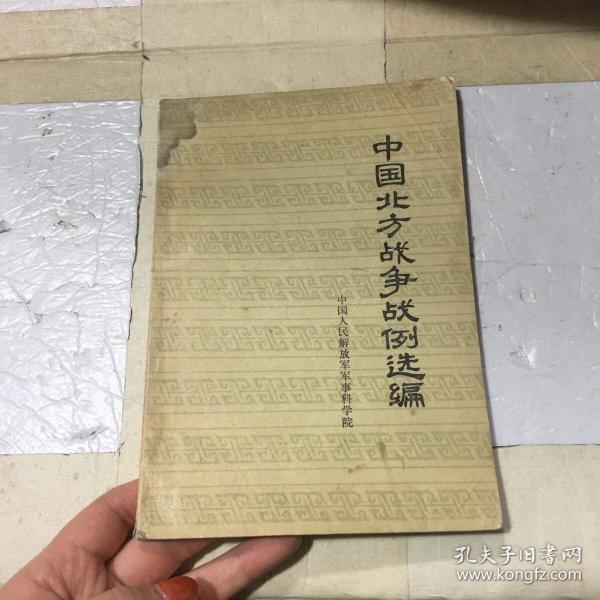 中国北方战争战例选编
中国人民解放军军事科学院
孔夫子旧书网
www.kongfz.com